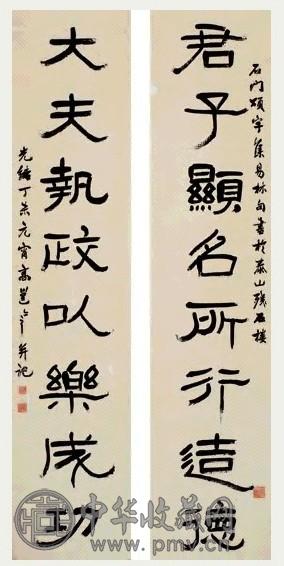 石門頌字集易林句書於泰山殘石樓
君子顯名所行造德
大夫執政以樂成功
光緒丁未元宵高邕之并記
中华收藏网
www.pmv.cn